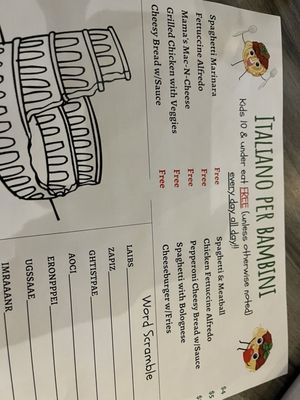 ITALIANO PER BAMBINI
Kids 10 & under eat FREE (unless otherwise noted)
every day all day!!
Spaghetti Marinara Free
Fettuccine Alfredo Free
Mama's Mac-N-Cheese Free
Grilled Chicken with Veggies Free
Cheesy Bread w/Sauce Free
Spaghetti & Meatball $4
Chicken Fettuccine Alfredo $5
Pepperoni Cheesy Bread w/Sauce $
Spaghetti with Bolognese
Cheeseburger w/Fries
Word Scramble
LAIBS
ZAPIZ
GHTISTPAE
AOCI
ERONPPPEI
UGSSAAE
IMRAAANR